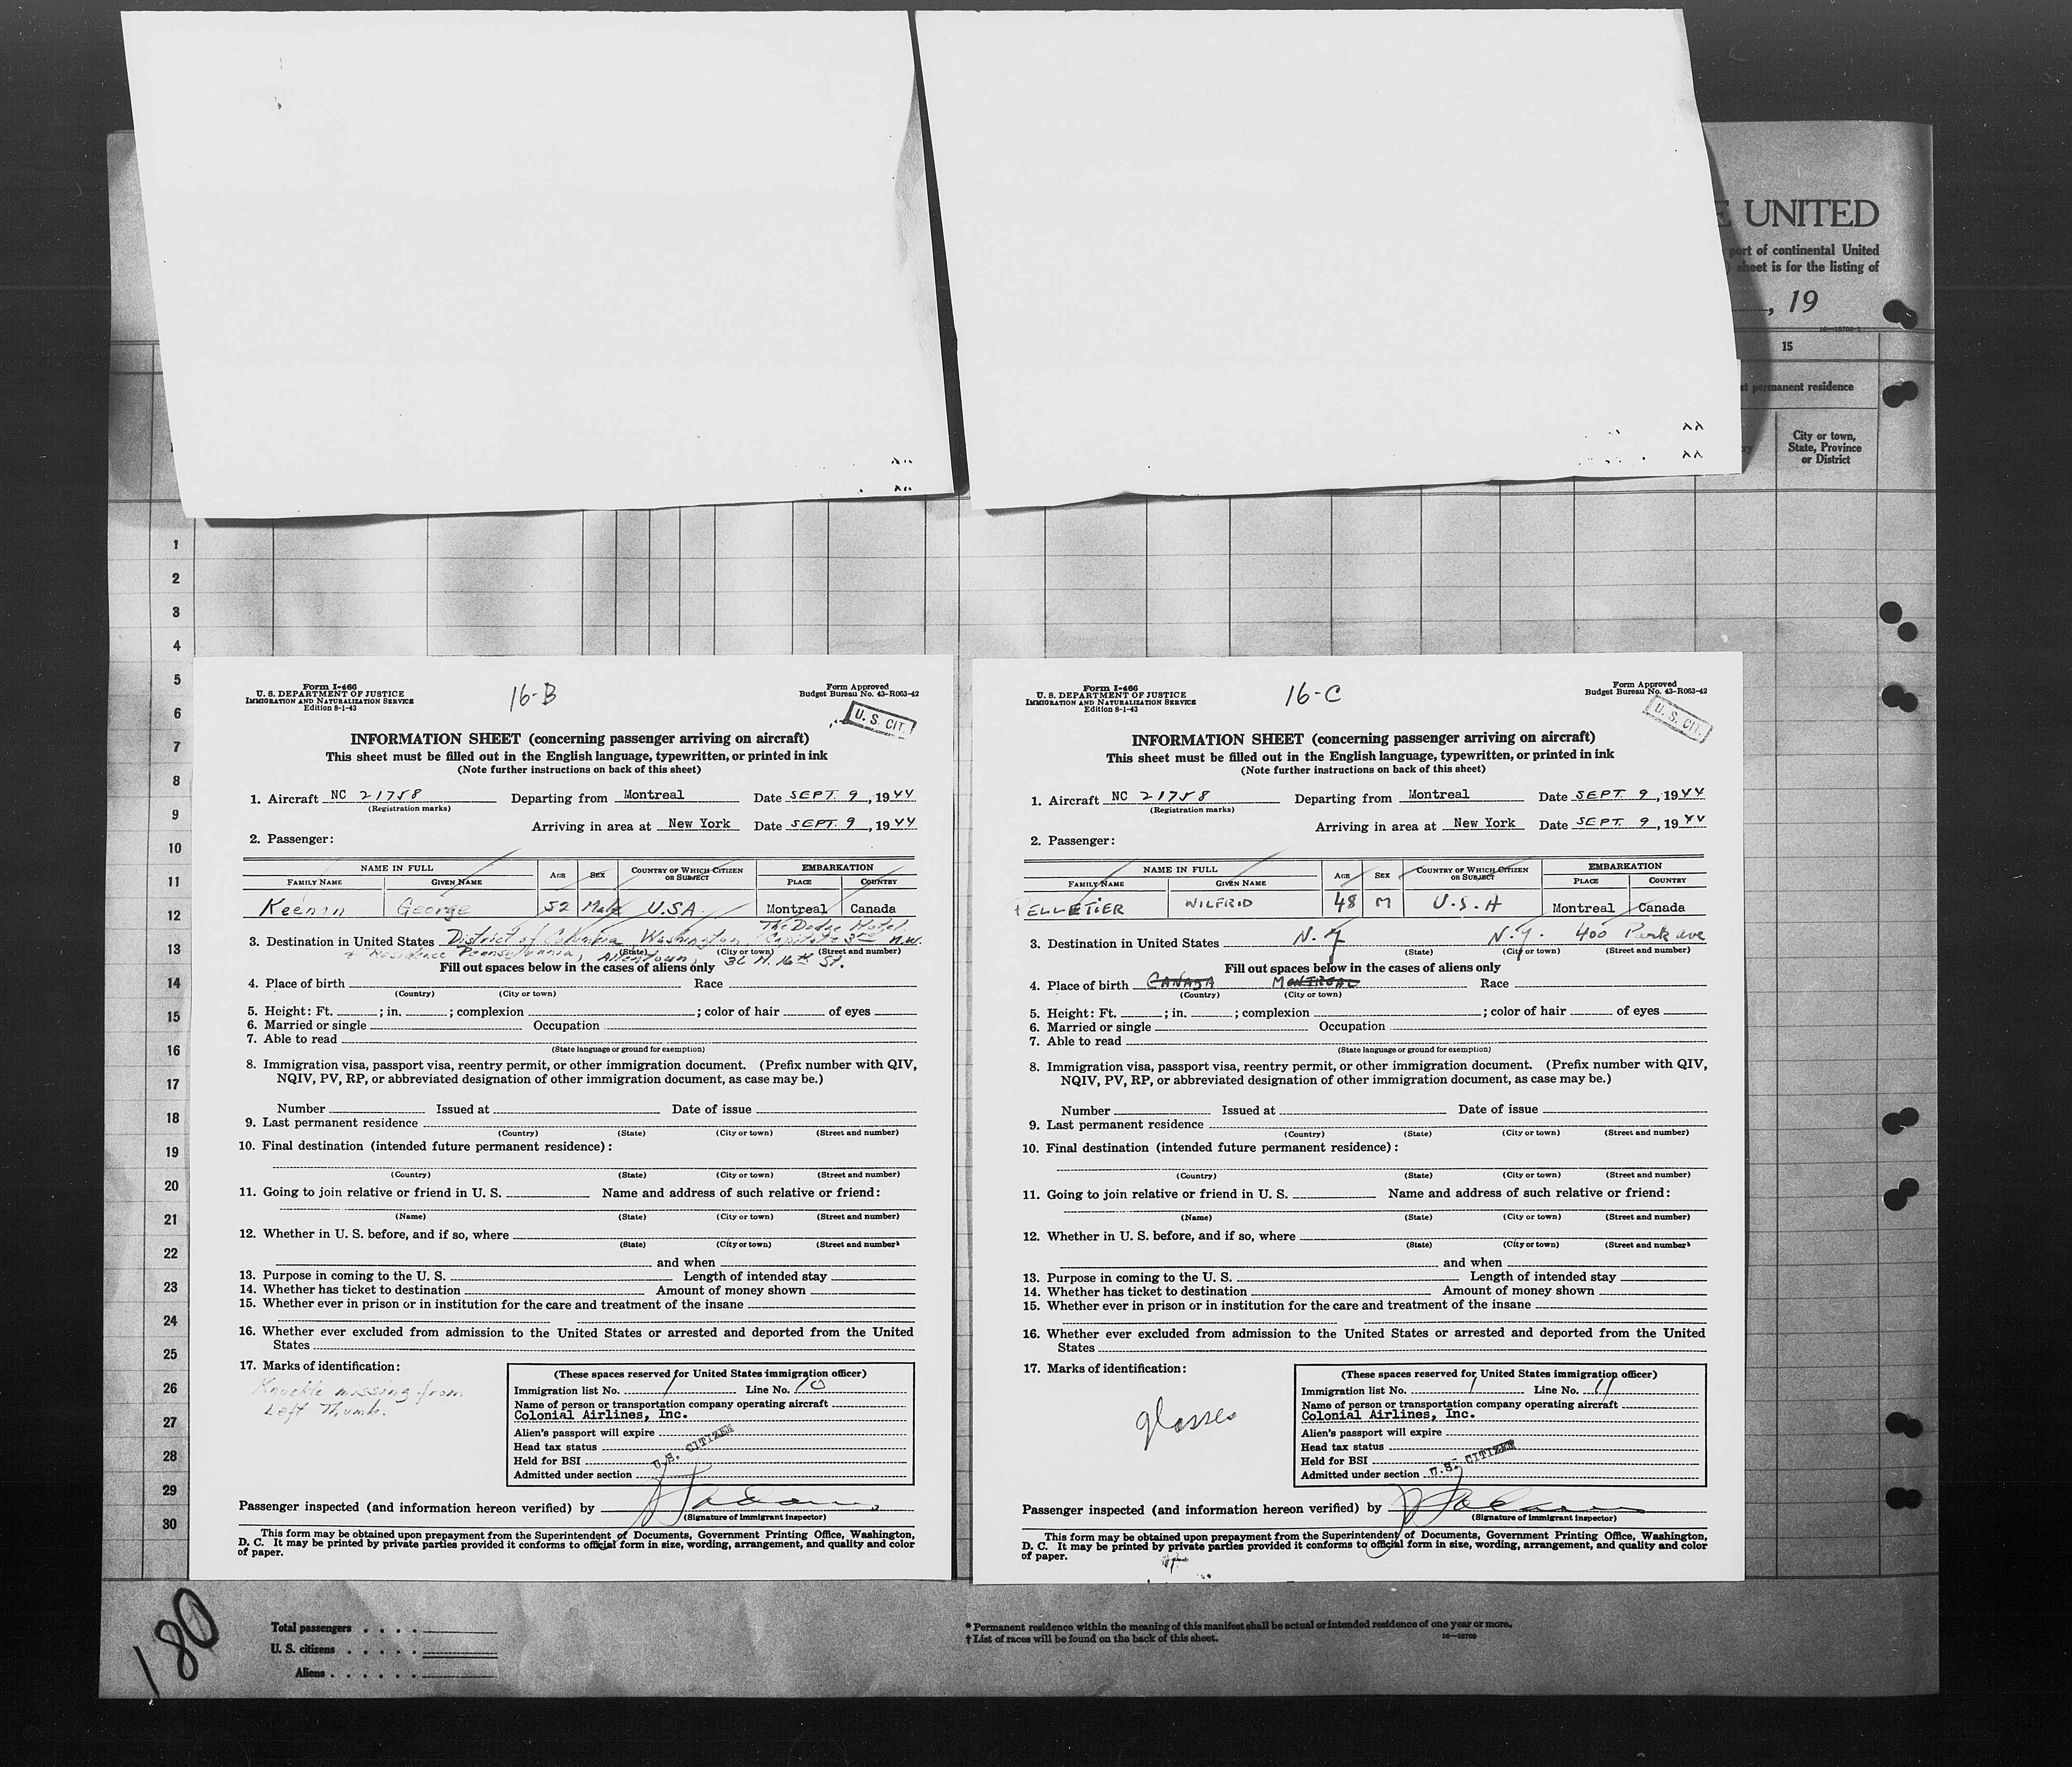 E UNITED
port of continental United
) sheet is for the listing of
, 19
16—18708-1
15
st permanent residence
City or town,
State, Province
or District
1
2
3
4
5
6
7
8
9
10
11
12
13
14
15
16
17
18
19
20
21
22
23
24
25
26
27
28
29
30
Form I-466
U. S. DEPARTMENT OF JUSTICE
IMMIGRATION AND NATURALIZATION SERVICE
Edition 8-1-43
16-B
Form Approved
Budget Bureau No. 43-R063-42
U. S. CIT.
INFORMATION SHEET (concerning passenger arriving on aircraft)
This sheet must be filled out in the English language, typewritten, or printed in ink
(Note further instructions on back of this sheet)
1. Aircraft NC 21758 Departing from Montreal Date SEPT. 9, 1944
(Registration marks)
Arriving in area at New York Date SEPT. 9, 1944
2. Passenger:
NAME IN FULL AGE SEX COUNTRY OF WHICH CITIZEN OR SUBJECT EMBARKATION
FAMILY NAME GIVEN NAME PLACE COUNTRY
Keenan George 52 Male U.S.A. Montreal Canada
The Dodge Hotel,
3. Destination in United States District of Columbia Washington, Capitol 3rd N.W.
(State) (City or town) (Street and number)
& Residence Pennsylvania, Allentown, 36 N. 16th St.
Fill out spaces below in the cases of aliens only
4. Place of birth Race
(Country) (City or town)
5. Height: Ft. ; in. ; complexion ; color of hair of eyes
6. Married or single Occupation
7. Able to read
(State language or ground for exemption)
8. Immigration visa, passport visa, reentry permit, or other immigration document. (Prefix number with QIV,
NQIV, PV, RP, or abbreviated designation of other immigration document, as case may be.)
Number Issued at Date of issue
9. Last permanent residence
(Country) (State) (City or town) (Street and number)
10. Final destination (intended future permanent residence):
(Country) (State) (City or town) (Street and number)
11. Going to join relative or friend in U. S. Name and address of such relative or friend:
(Name) (State) (City or town) (Street and number)
12. Whether in U. S. before, and if so, where
(State) (City or town) (Street and number)
and when
13. Purpose in coming to the U. S. Length of intended stay
14. Whether has ticket to destination Amount of money shown
15. Whether ever in prison or in institution for the care and treatment of the insane
16. Whether ever excluded from admission to the United States or arrested and deported from the United
States
17. Marks of identification:
Knuckle missing from
Left Thumb.
(These spaces reserved for United States immigration officer)
Immigration list No. 1 Line No. 10
Name of person or transportation company operating aircraft
Colonial Airlines, Inc.
Alien's passport will expire
Head tax status
Held for BSI
Admitted under section
U.S. CITIZEN
Passenger inspected (and information hereon verified) by
(Signature of immigrant inspector)
This form may be obtained upon prepayment from the Superintendent of Documents, Government Printing Office, Washington,
D. C. It may be printed by private parties provided it conforms to official form in size, wording, arrangement, and quality and color
of paper.
Form I-466
U. S. DEPARTMENT OF JUSTICE
IMMIGRATION AND NATURALIZATION SERVICE
Edition 8-1-43
16-C
Form Approved
Budget Bureau No. 43-R063-42
U. S. CIT.
INFORMATION SHEET (concerning passenger arriving on aircraft)
This sheet must be filled out in the English language, typewritten, or printed in ink
(Note further instructions on back of this sheet)
1. Aircraft NC 21758 Departing from Montreal Date SEPT. 9, 1944
(Registration marks)
Arriving in area at New York Date SEPT. 9, 1944
2. Passenger:
NAME IN FULL AGE SEX COUNTRY OF WHICH CITIZEN OR SUBJECT EMBARKATION
FAMILY NAME GIVEN NAME PLACE COUNTRY
PELLETIER WILFRID 48 M U.S.A Montreal Canada
3. Destination in United States N.Y N.Y. 400 Park ave
(State) (City or town) (Street and number)
Fill out spaces below in the cases of aliens only
4. Place of birth CANADA MONTREAL Race
(Country) (City or town)
5. Height: Ft. ; in. ; complexion ; color of hair of eyes
6. Married or single Occupation
7. Able to read
(State language or ground for exemption)
8. Immigration visa, passport visa, reentry permit, or other immigration document. (Prefix number with QIV,
NQIV, PV, RP, or abbreviated designation of other immigration document, as case may be.)
Number Issued at Date of issue
9. Last permanent residence
(Country) (State) (City or town) (Street and number)
10. Final destination (intended future permanent residence):
(Country) (State) (City or town) (Street and number)
11. Going to join relative or friend in U. S. Name and address of such relative or friend:
(Name) (State) (City or town) (Street and number)
12. Whether in U. S. before, and if so, where
(State) (City or town) (Street and number)
and when
13. Purpose in coming to the U. S. Length of intended stay
14. Whether has ticket to destination Amount of money shown
15. Whether ever in prison or in institution for the care and treatment of the insane
16. Whether ever excluded from admission to the United States or arrested and deported from the United
States
17. Marks of identification:
glasses
(These spaces reserved for United States immigration officer)
Immigration list No. 1 Line No. 11
Name of person or transportation company operating aircraft
Colonial Airlines, Inc.
Alien's passport will expire
Head tax status
Held for BSI
Admitted under section U.S. CITIZEN
Passenger inspected (and information hereon verified) by
(Signature of immigrant inspector)
This form may be obtained upon prepayment from the Superintendent of Documents, Government Printing Office, Washington,
D. C. It may be printed by private parties provided it conforms to official form in size, wording, arrangement, and quality and color
of paper.
180
Total passengers . . . .
U. S. citizens . . . . .
Aliens . . . . . .
* Permanent residence within the meaning of this manifest shall be actual or intended residence of one year or more.
† List of races will be found on the back of this sheet.
16—18708